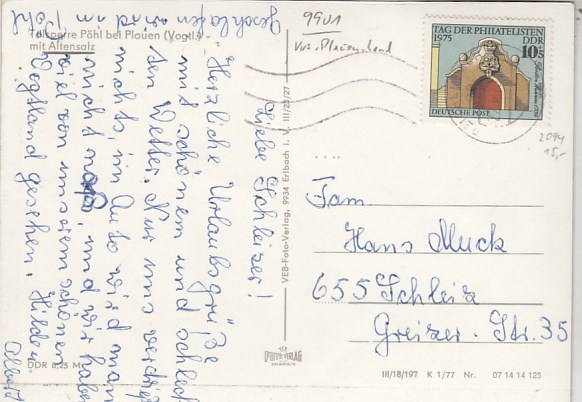 Talsperre Pöhl bei Plauen (Vogtl.)
mit Altensalz
Liebe Schleizer!
Herzliche Urlaubsgrüße
mit schönem und schlech-
ten Wetter. Nur uns verdrießt
nichts, im Auto wird man
nicht naß und wir haben
viel von unserem schönen
Vogtland gesehen. Hilde u
Albert
Geschlafen wird im Pöhl
DDR 0,25 M
VEB-Foto-Verlag, 9934 Erlbach i. V. III/23/27
FOTO-VERLAG
9901
TAG DER PHILATELISTEN
1975 DDR
10
DEUTSCHE POST
2094
15,-
Fam.
Hans Muck
655 Schleiz
Greizer. Str. 35
III/18/197 K 1/77 Nr. 07 14 14 125